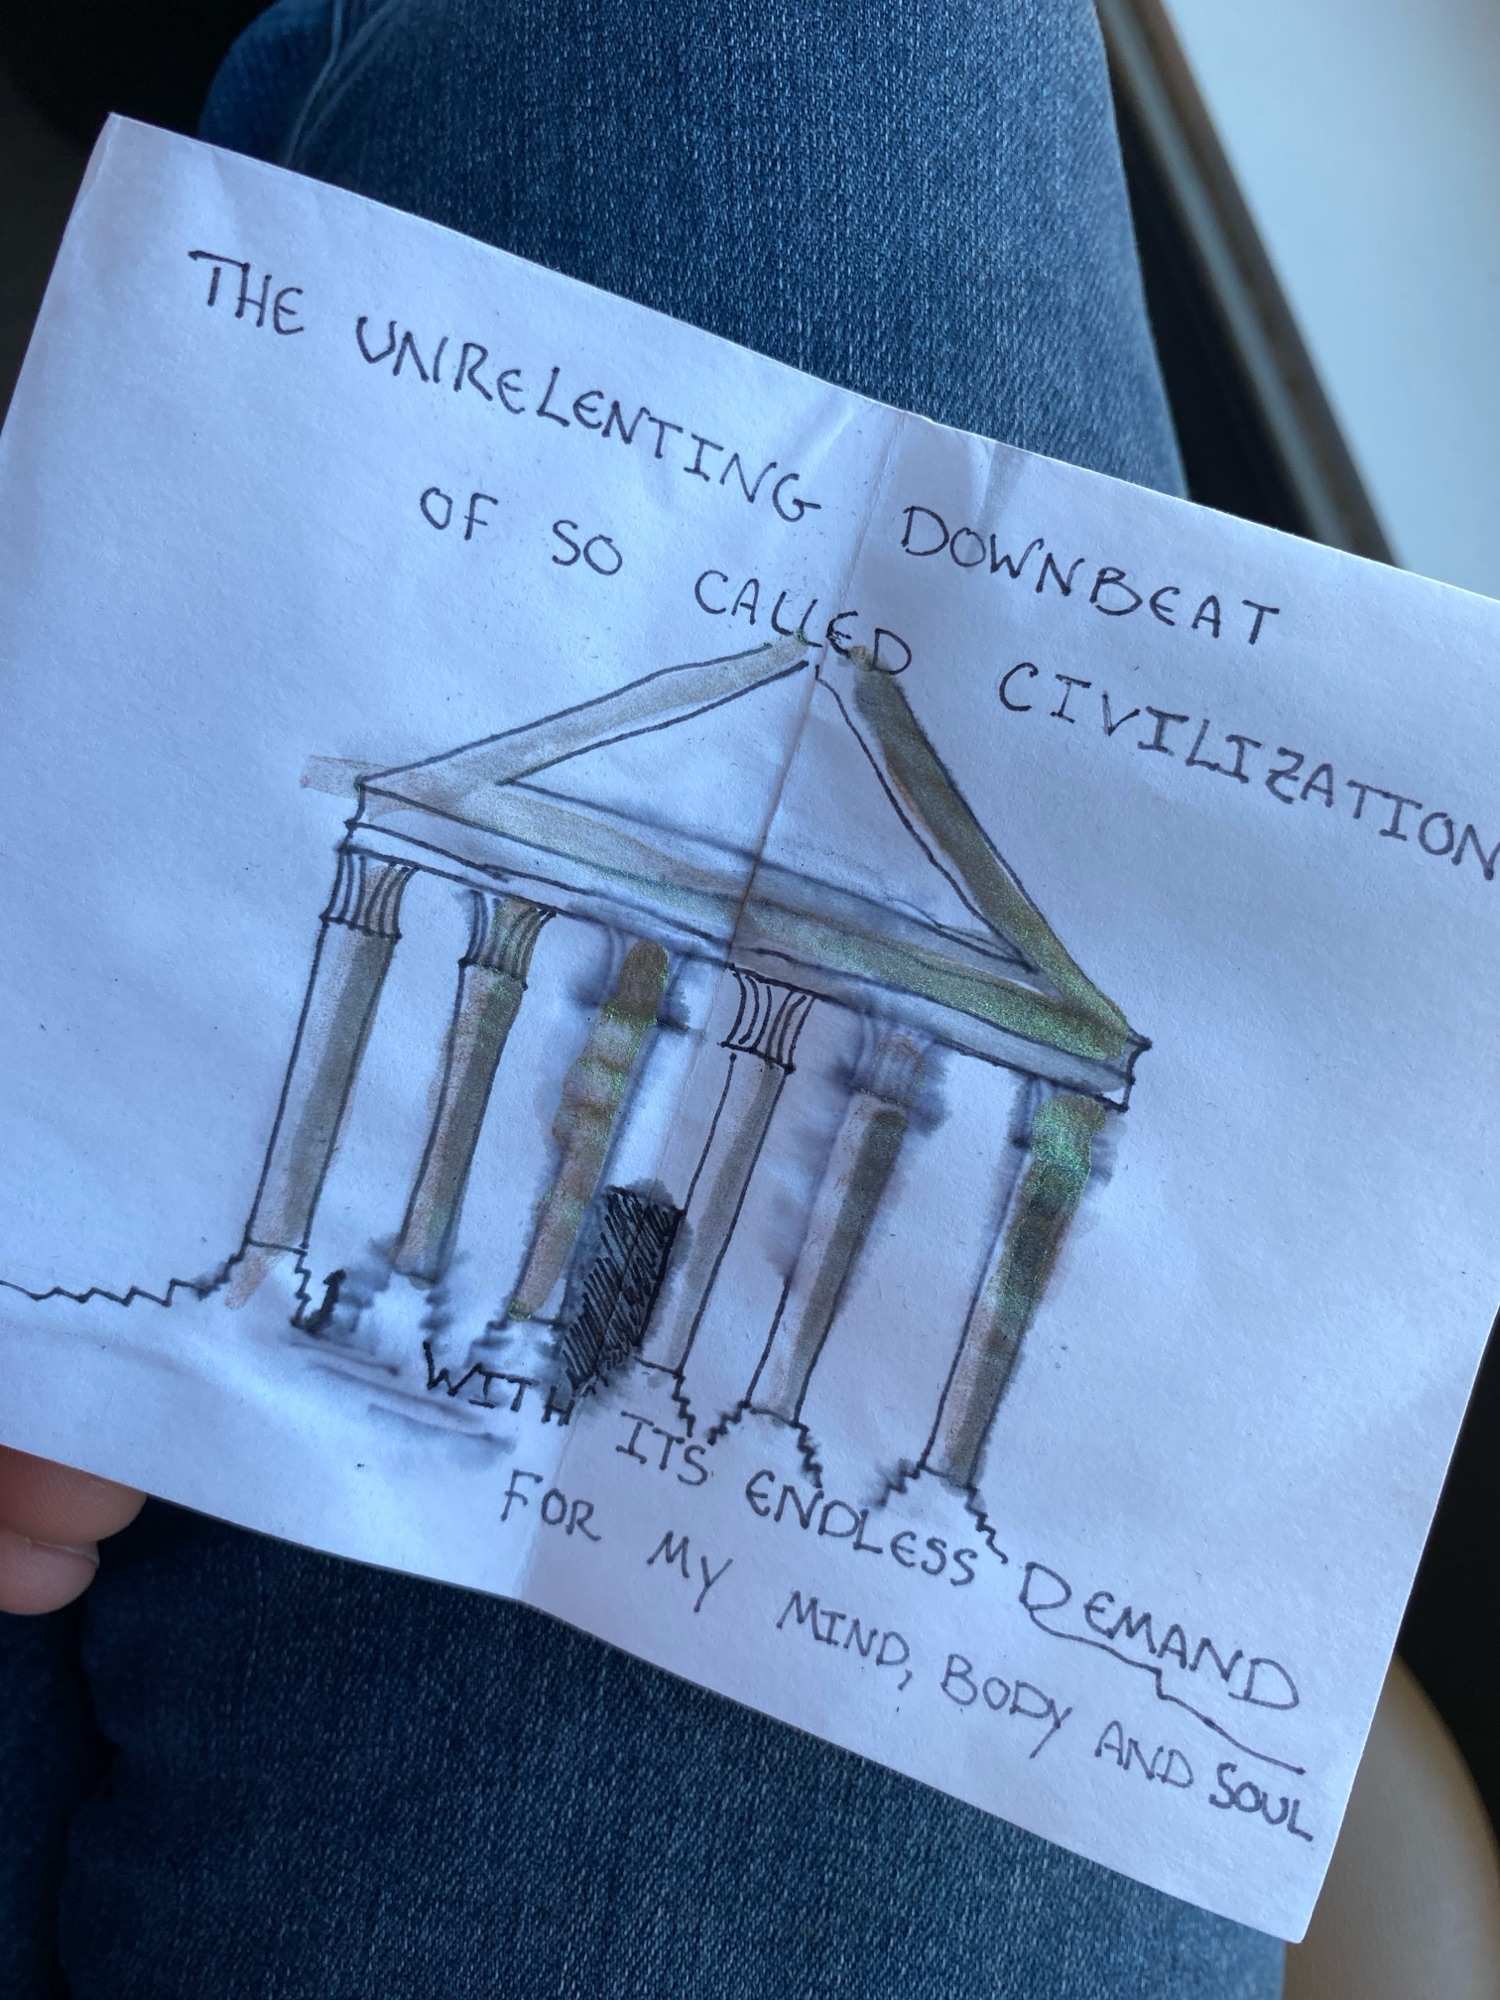 THE UNRELENTING DOWNBEAT
OF SO CALLED CIVILIZATION
WITH ITS ENDLESS DEMAND
FOR MY MIND, BODY AND SOUL